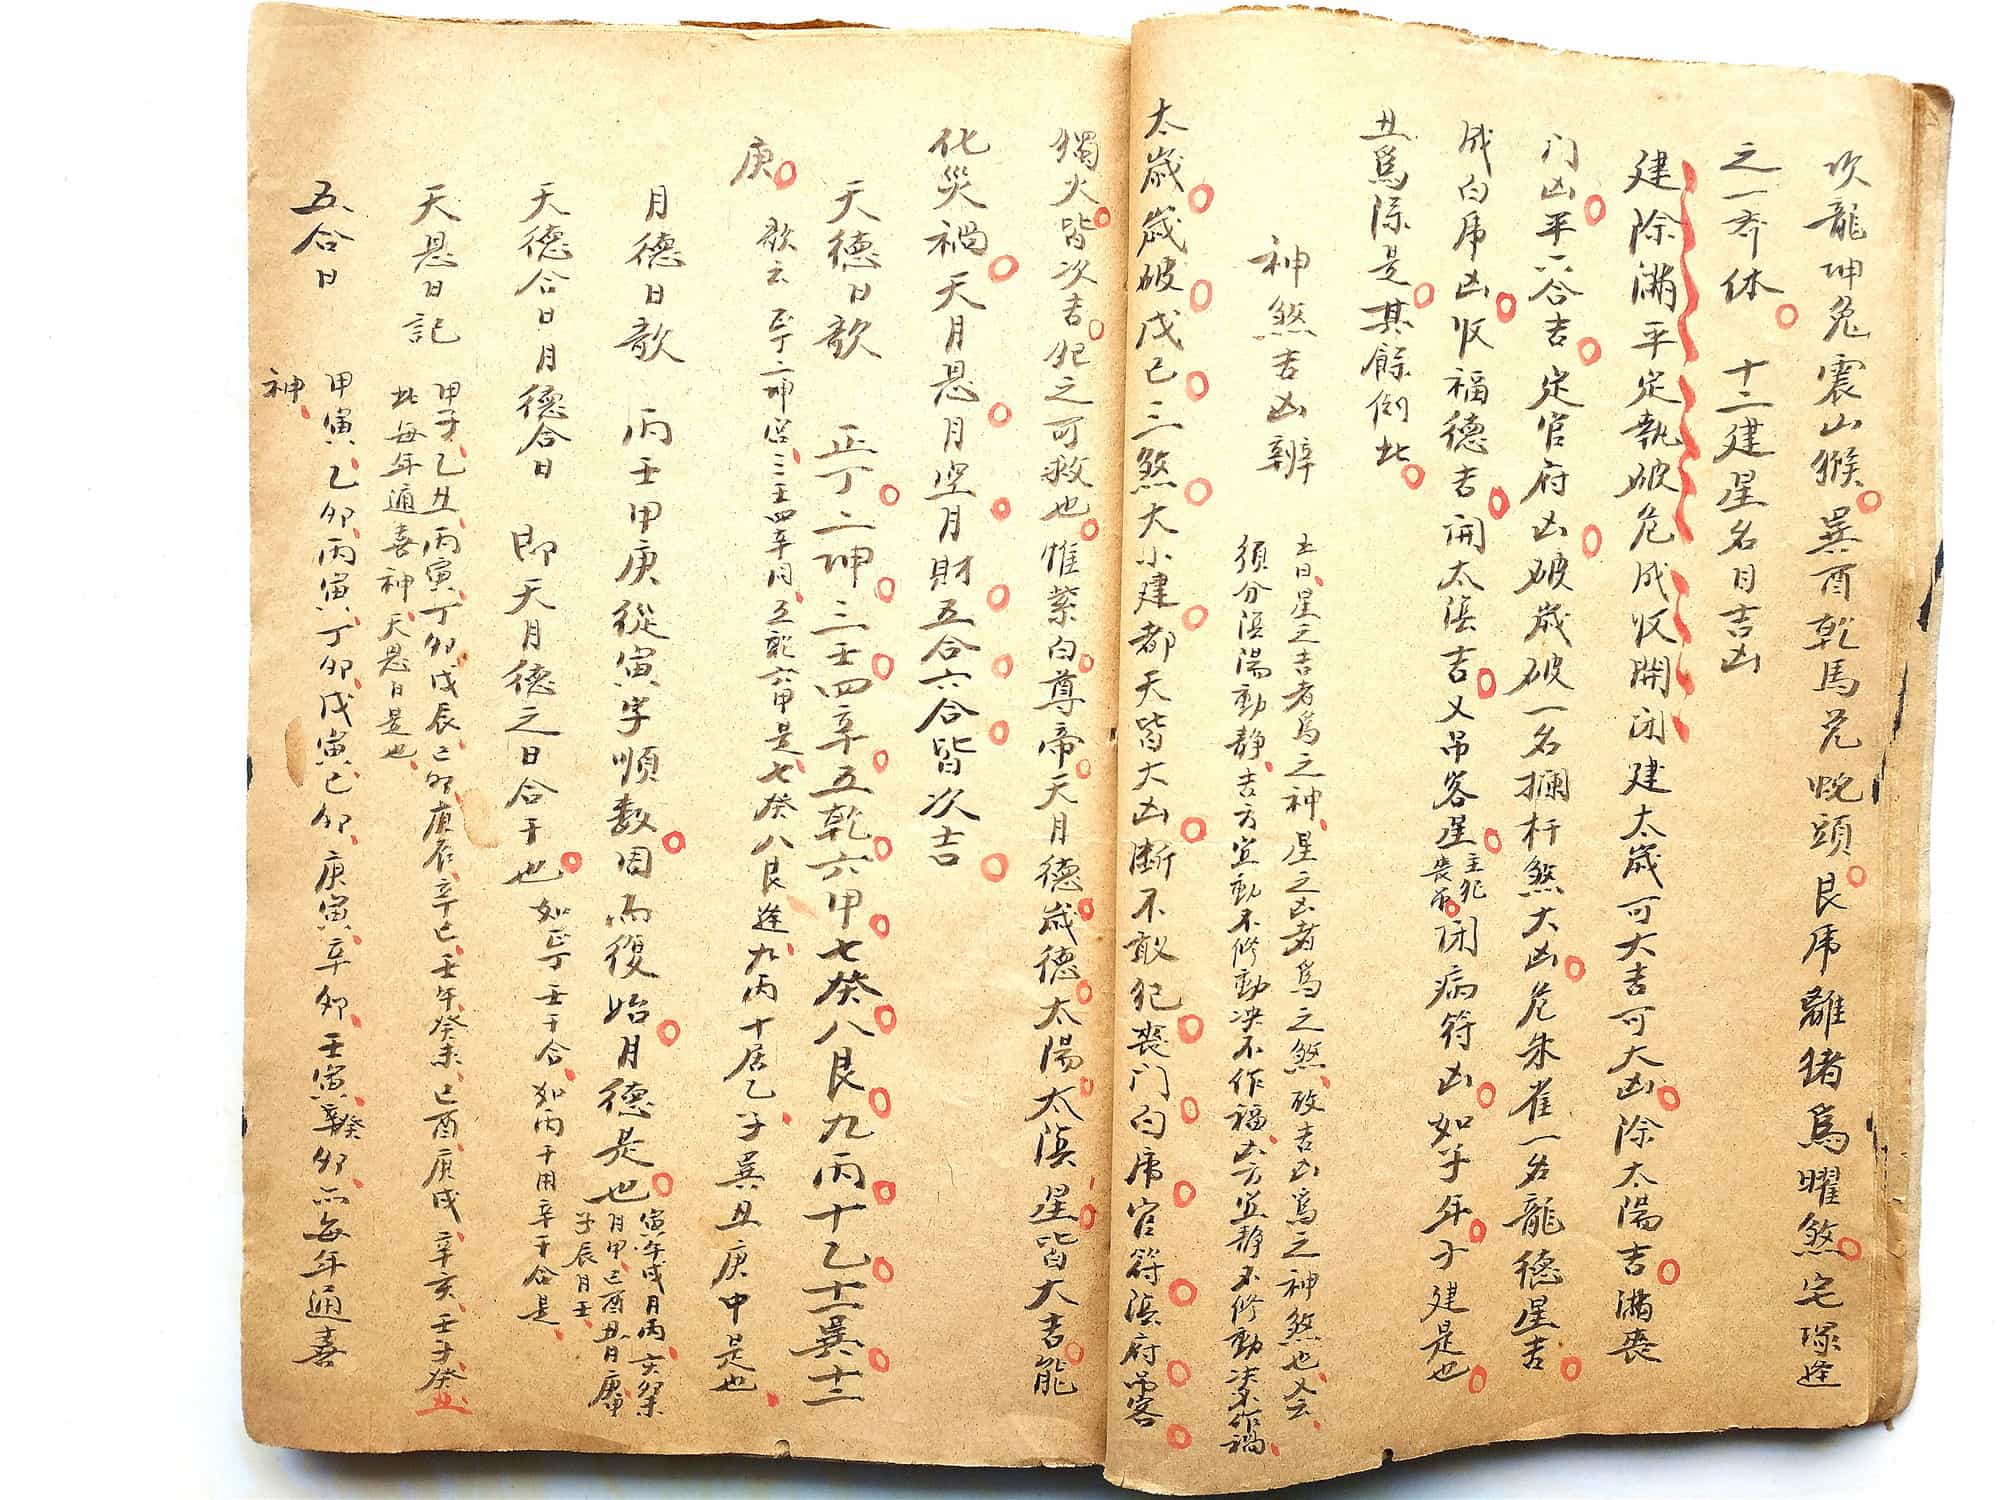 坎龍坤兔震山猴巽酉乾馬兑蛇頭艮虎離猪為曜煞宅塚逢
之一齐休 十二建星名目吉凶
建除滿平定執破危成收開闭建太歲可大吉可大凶除太陽吉滿丧
门凶平六合吉定官府凶破歲破一名攔杆煞大凶危朱雀一名龍德星吉
成白虎凶收福德吉開太陰吉又吊客星主犯丧吊闭病符凶如子年子建是也
丑為除是其餘倣此
神煞吉凶辨
吉日星之吉者為之神星之凶者為之煞故吉凶為之神煞也人云
須分陰陽動静吉方宜動不修動决不作福凶方宜静不修動决不作禍
太歲歲破戊己三煞大小建都天皆大凶断不敢犯丧门白虎官符陰府吊客
獨火皆次吉犯之可救也惟紫白尊帝天月德歲德太陽太陰星皆大吉能
化災禍天月恩月空月財五合六合皆次吉
天德日歌 正丁二坤三壬四辛五乾六甲七癸八艮九丙十乙十一巽十二
庚 歌云正丁二坤宫三壬四辛同五乾六甲是七癸八艮逢九丙十居乙子巽丑庚中是也
月德日歌 丙壬甲庚從寅字順数周而復始月德是也寅午戌月丙
月甲巳酉丑月庚
子辰月壬
天德合日月德合日 即天月德之日合干也如正丁壬干合如丙干用辛干合是
天恩日記 甲子乙丑丙寅丁卯戊辰己卯庚辰辛巳壬午癸未己酉庚戌辛亥壬子癸丑
此每年通喜神天恩日是也
五合日 甲寅乙卯丙寅丁卯戊寅己卯庚寅辛卯壬寅癸卯而每年通喜
神